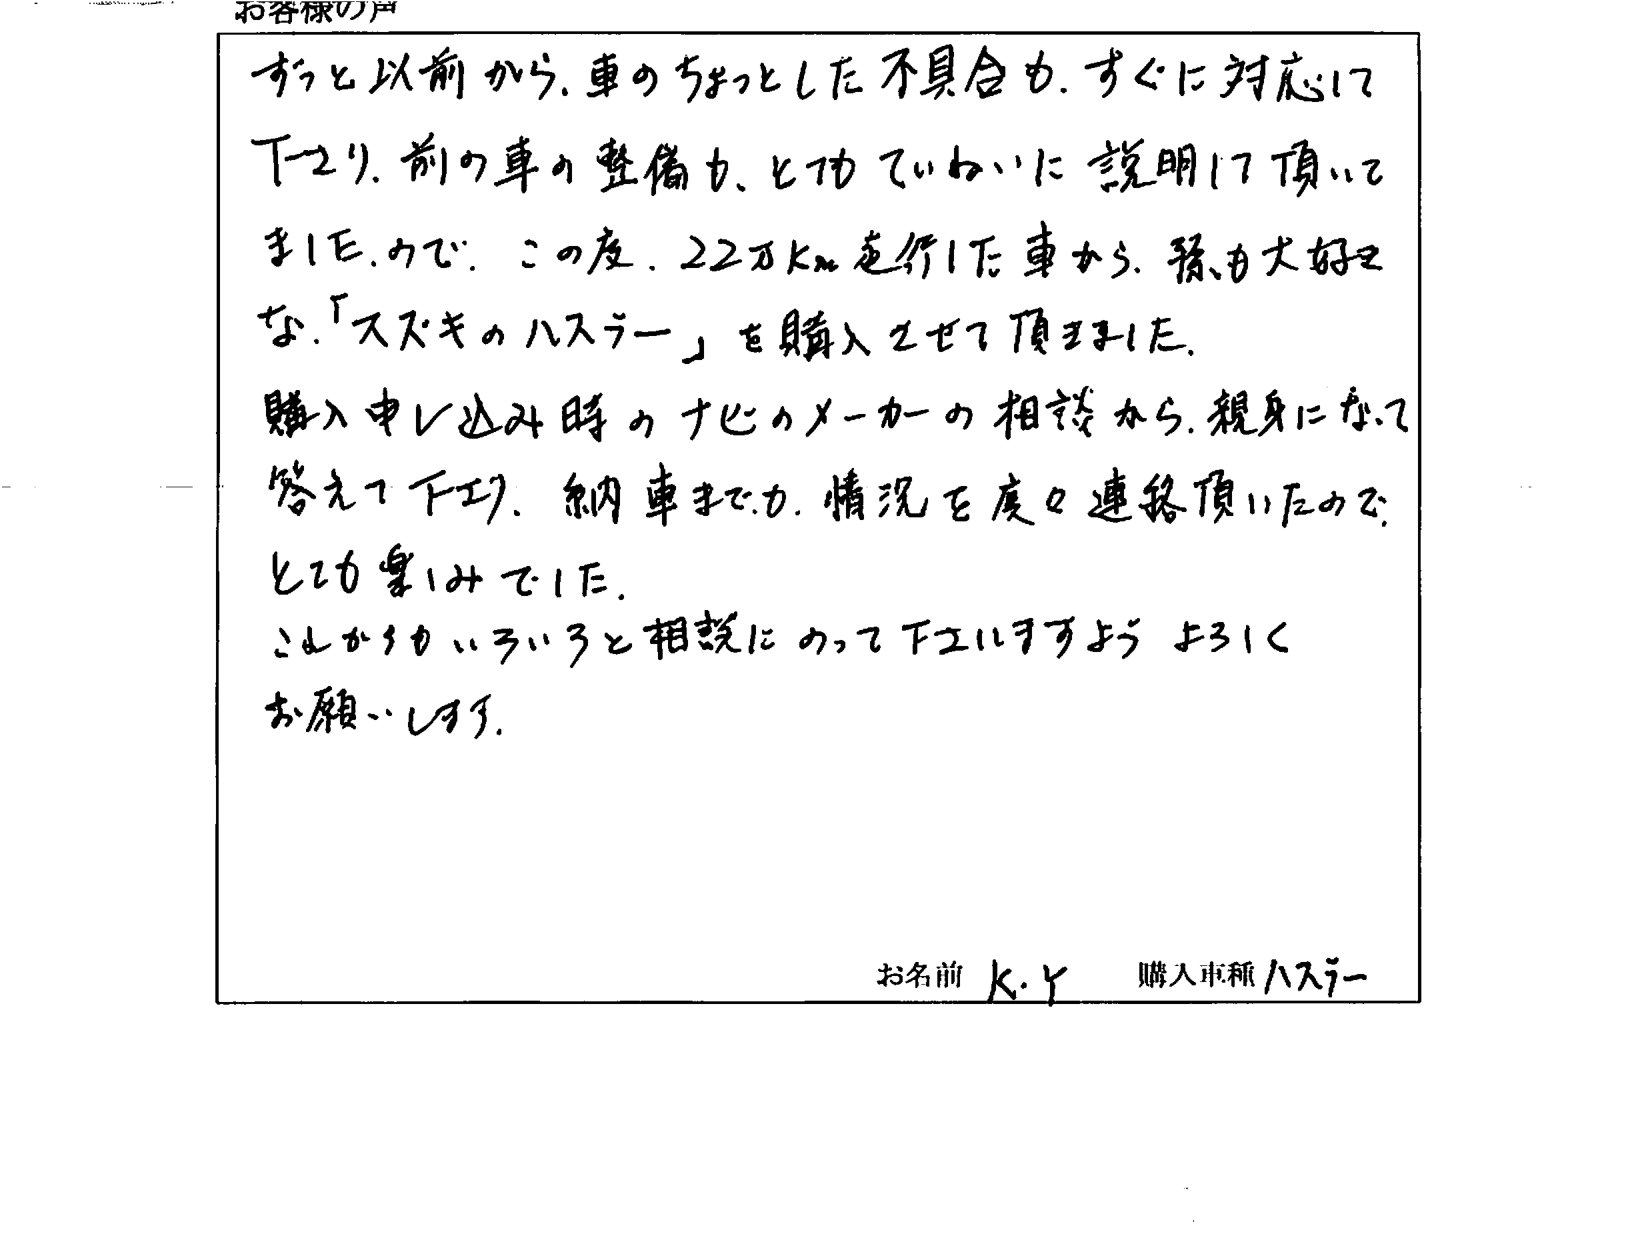 お客様の声
ずっと以前から、車のちょっとした不具合も、すぐに対応して
下さり、前の車の整備も、とてもていねいに説明して頂いて
ました、ので、この度、22万km走行した車から、孫も大好き
な、「スズキのハスラー」を購入させて頂きました。
購入申し込み時のナビのメーカーの相談から、親身になって
答えて下さり、納車までも、情況を度々連絡頂いたので、
とても楽しみでした。
これからもいろいろと相談にのって下さいますようよろしく
お願いします。
お名前 K.Y 購入車種 ハスラー